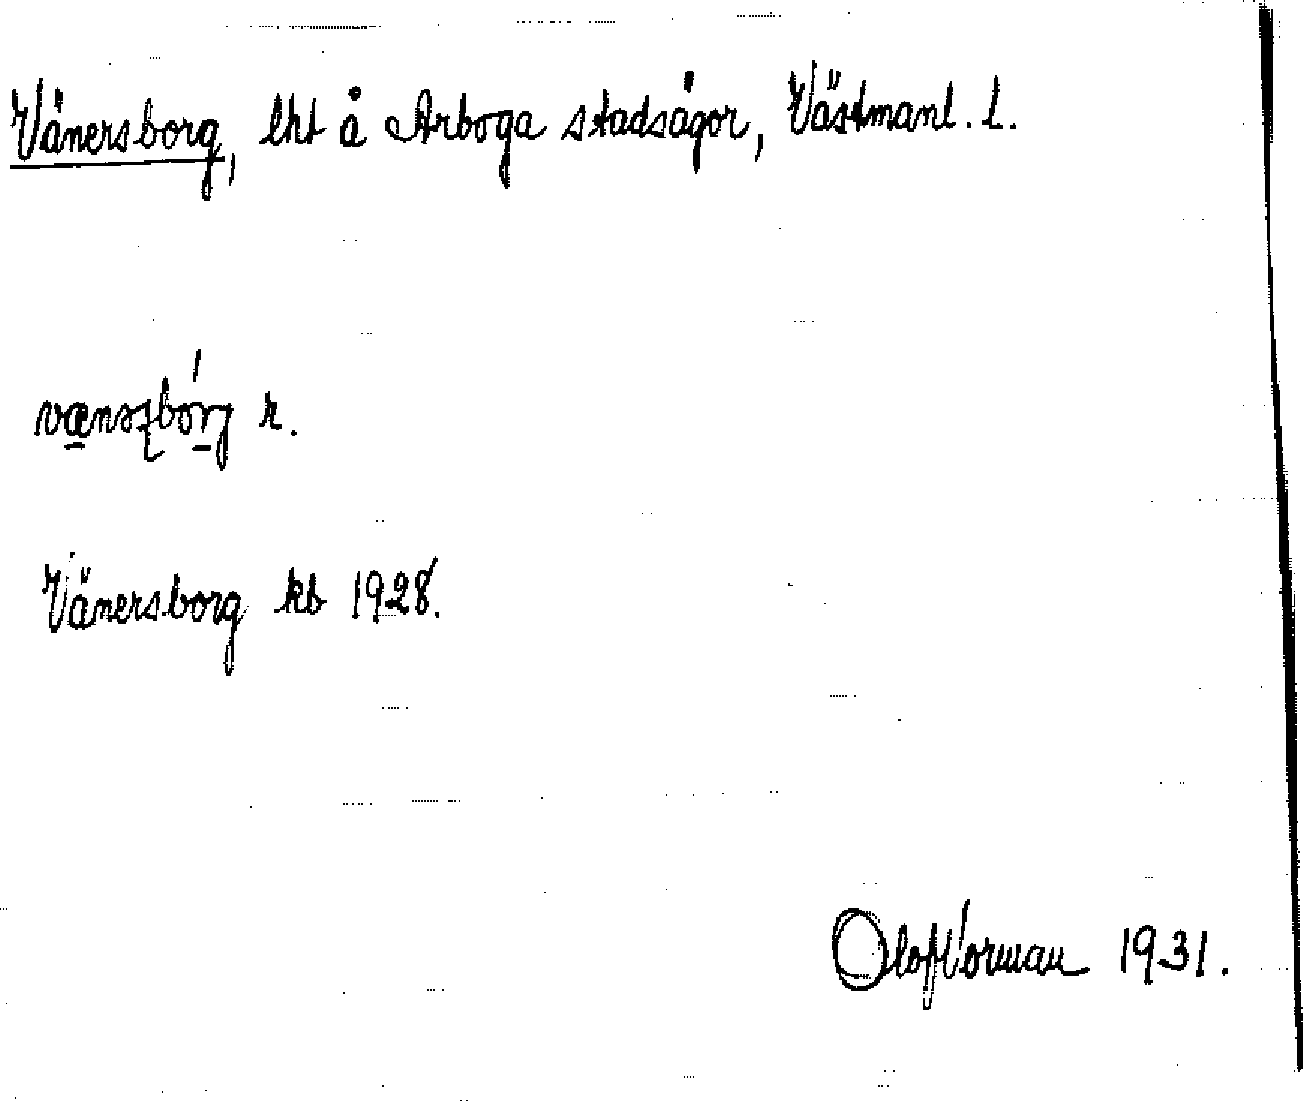 Vänersborg, lht å Arboga stadsägor, Västmanl. l.
vænsʒbórj r.
Vänersborg kb 1928.
Olof Norman 1931.